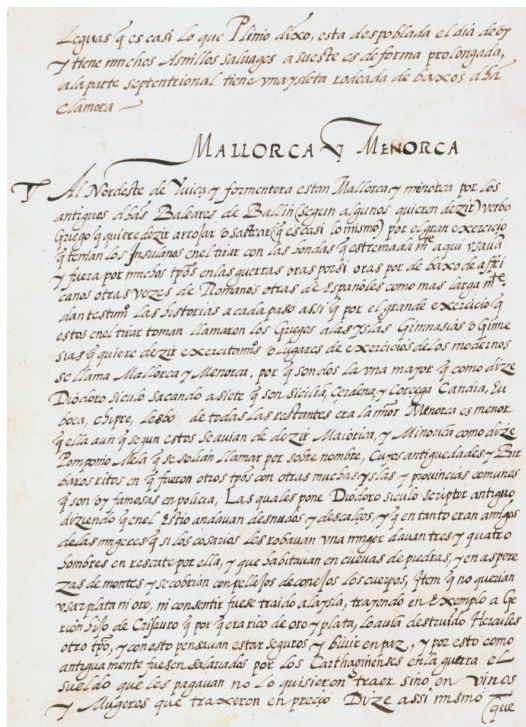 Leguas q̃ es casi lo que Plinio dixo, esta despoblada el dia de oy
y tiene muchos Asnillos saluages a sueste es de forma prolongada,
a la parte septentrional tiene vna ysleta rodeada de baxos dha
clamora
MALLORCA Y MENORCA
Al Nordeste de Yuiça y formentera estan Mallorca y minorca por los
antiguos dhas Baleares de Ballin (segun algunos quieren dezir) verbo
Griego q̃ quiere dezir arrojar o saettar (q̃ es casi lo mismo) por el gran exercicio
q̃ tenian los Insulanos en el tirar con las hondas q̃ estremada mte. aqui vsauã
y fuera por muchos tpõs en las guerras oras por si oras por de baxo de affri
canos otras vezes de Romanos otras de Españoles como mas larga mte.
dan testimo las historias a cada paso assi q̃ por el grande exercicio q̃
estos en el tirar toman llamaron los Griegos a las yslas Gimnasias o Gime
sias q̃ quiere dezir exercitamos o lugares de exercicios de los modernos
se llama Mallorca y Menorca, por q̃ son dos la vna mayor q̃ como dize
Diodoro siculo sacando a siete q̃ son sicilia, Cerdena, y Corcega Candia, Eu
boea, chipre, Lesbo de todas las restantes era la mõr Menorca es menor
q̃ ella aun q̃ segun estos se auian de dezir Maiorica, y Minorica como dize
Pomponio Mela q̃ se solian llamar por sobre nombre, Cuyas antiguedades y Bar
baros ritos en q̃ fueron otos tpõs con otras muchas yslas y prouincias comunes
q̃ son oy famosas en policia, Las quales pone Diodoro siculo scriptor antiguo
diziendo q̃ en el Estio andauan desnudos y descalços, y q̃ en tanto eran amigos
de las mugeres q̃ si los cosarios les robauan vna muger dauan tres y quatro
hombres en rescate por ella, y que habitauan en cueuas de piedras, y en aspere
zas de montes y se cobrian con pellejos de conejos los cuerpos, Item q̃ no querian
vsar plata ni oro, ni consentir fuese traido a la ysla, trayendo en Exemplo a Ge
rion hijo de Crisauro q̃ por q̃ era rico de oro y plata, lo auia destruido Hercules
otro tpõ, y con esto pensauan estar seguros y biuir en paz, y por esto como
antiguamente fuesen salariados por los Carthaginenses en la guerra el
sueldo que les pagauan no lo quisieron traer sino en vinos
y Mugeres que traxeron en precio Dize assi mismo
que